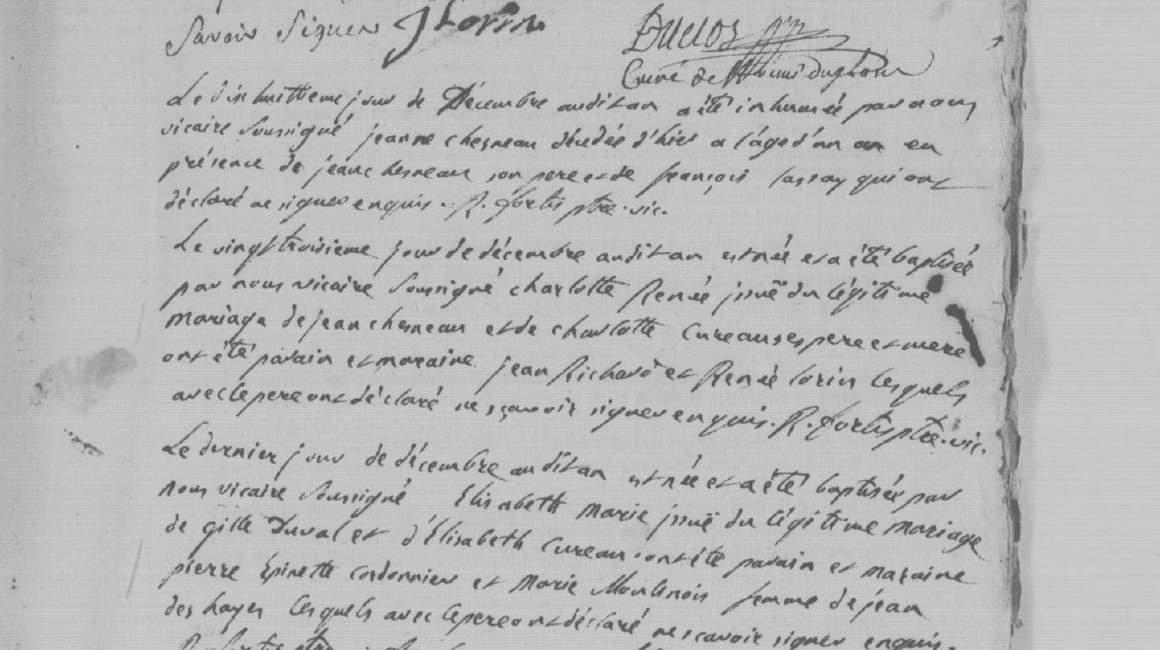 Savoir Signer J Lorin Duclos
Curé de
Le dix huittieme jour de Décembre audit an a été inhumée par nous
vicaire soussigné jeanne chesneau décédée d'hier a l'âge d'un an en
présence de jean chesneau son pere et de françois lassay qui ont
déclaré ne signer enquis. R. fortis ptre. vic.
Le vingt troisieme jour de décembre audit an est née et a été baptisée
par nous vicaire soussigné charlotte Renée issuë du légitime
mariage de jean chesneau et de charlotte Cureau ses pere et mere
ont été parain et maraine jean Richard et Renée lorin lesquels
avec le pere ont déclaré ne sçavoir signer enquis. R. fortis ptre. vic.
Le dernier jour de décembre audit an est née et a été baptisée par
nous vicaire soussigné Elisabeth Marie issuë du légitime mariage
de gille Duval et d'Elisabeth Cureau. ont été parain et maraine
pierre Epinette cordonnier et Marie Moulinois femme de jean
des hayes lesquels avec le pere ont déclaré ne scavoir signer enquis.